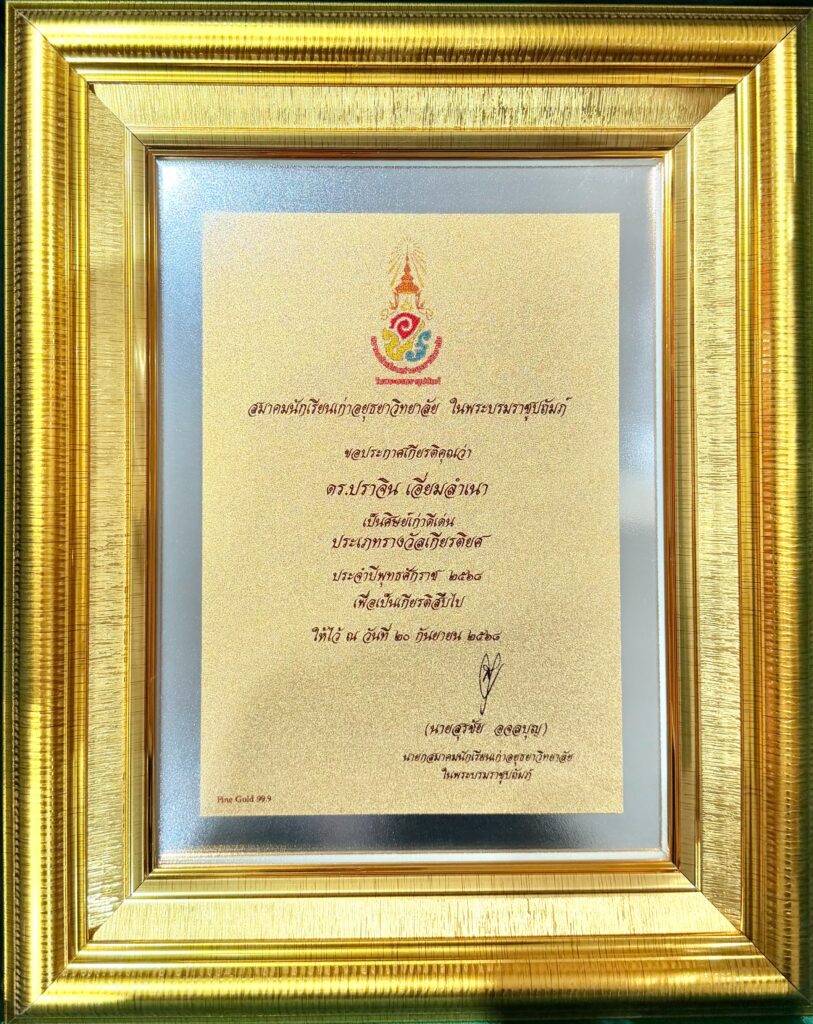 สมาคมนักเรียนเก่าอยุธยาวิทยาลัย
ในพระบรมราชูปถัมภ์
สมาคมนักเรียนเก่าอยุธยาวิทยาลัย ในพระบรมราชูปถัมภ์
ขอประกาศเกียรติคุณว่า
ดร.ปราจิน เอี่ยมลำเนา
เป็นศิษย์เก่าดีเด่น
ประเภทรางวัลเกียรติยศ
ประจำปีพุทธศักราช ๒๕๖๘
เพื่อเป็นเกียรติสืบไป
ให้ไว้ ณ วันที่ ๒๐ กันยายน ๒๕๖๘
(นายสุรชัย อจลบุญ)
นายกสมาคมนักเรียนเก่าอยุธยาวิทยาลัย
ในพระบรมราชูปถัมภ์
Fine Gold 99.9